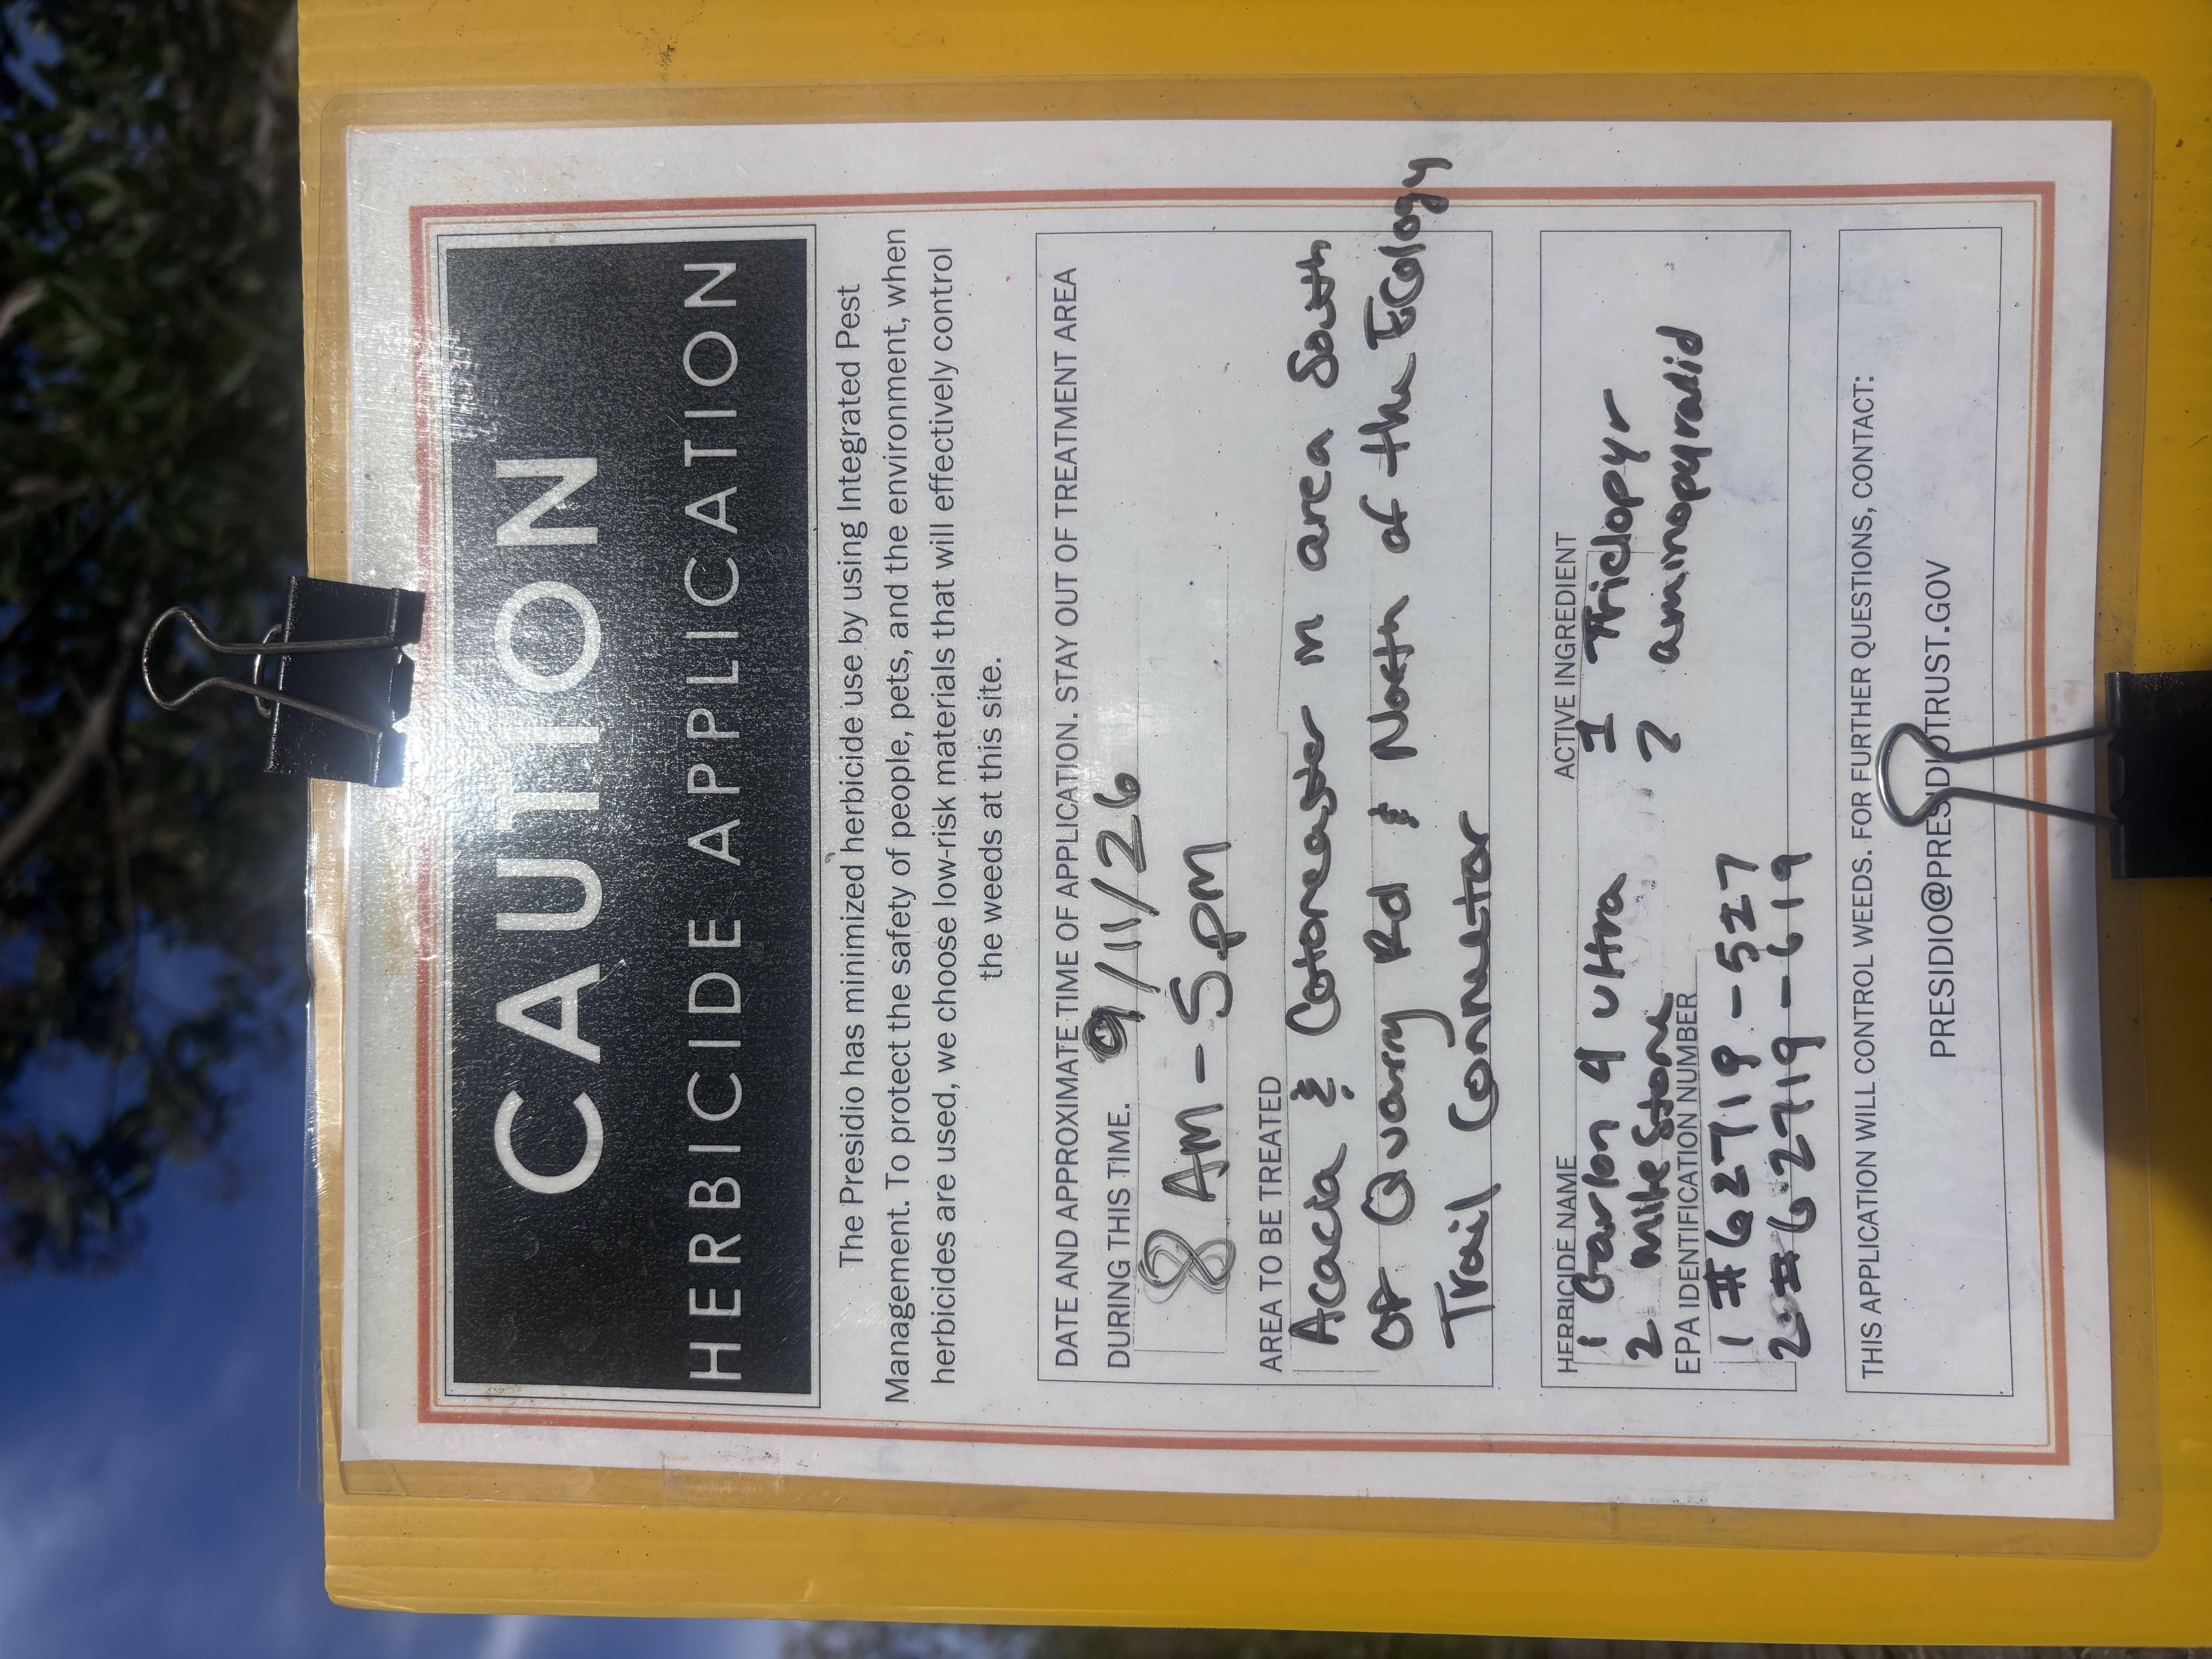 CAUTION
HERBICIDE APPLICATION
The Presidio has minimized herbicide use by using Integrated Pest
Management. To protect the safety of people, pets, and the environment, when
herbicides are used, we choose low-risk materials that will effectively control
the weeds at this site.
DATE AND APPROXIMATE TIME OF APPLICATION. STAY OUT OF TREATMENT AREA
DURING THIS TIME. 9/11/26
8 AM - 5 pm
AREA TO BE TREATED
Acacia & Cotoneaster in area South
of Quarry Rd & North of the Ecology
Trail Connector
HERBICIDE NAME
1 Garlon 4 Ultra
2 Milestone
EPA IDENTIFICATION NUMBER
1 # 62719-527
2 # 62719-619
ACTIVE INGREDIENT
1 Triclopyr
2 aminopyralid
THIS APPLICATION WILL CONTROL WEEDS. FOR FURTHER QUESTIONS, CONTACT:
PRESIDIO@PRESIDIOTRUST.GOV